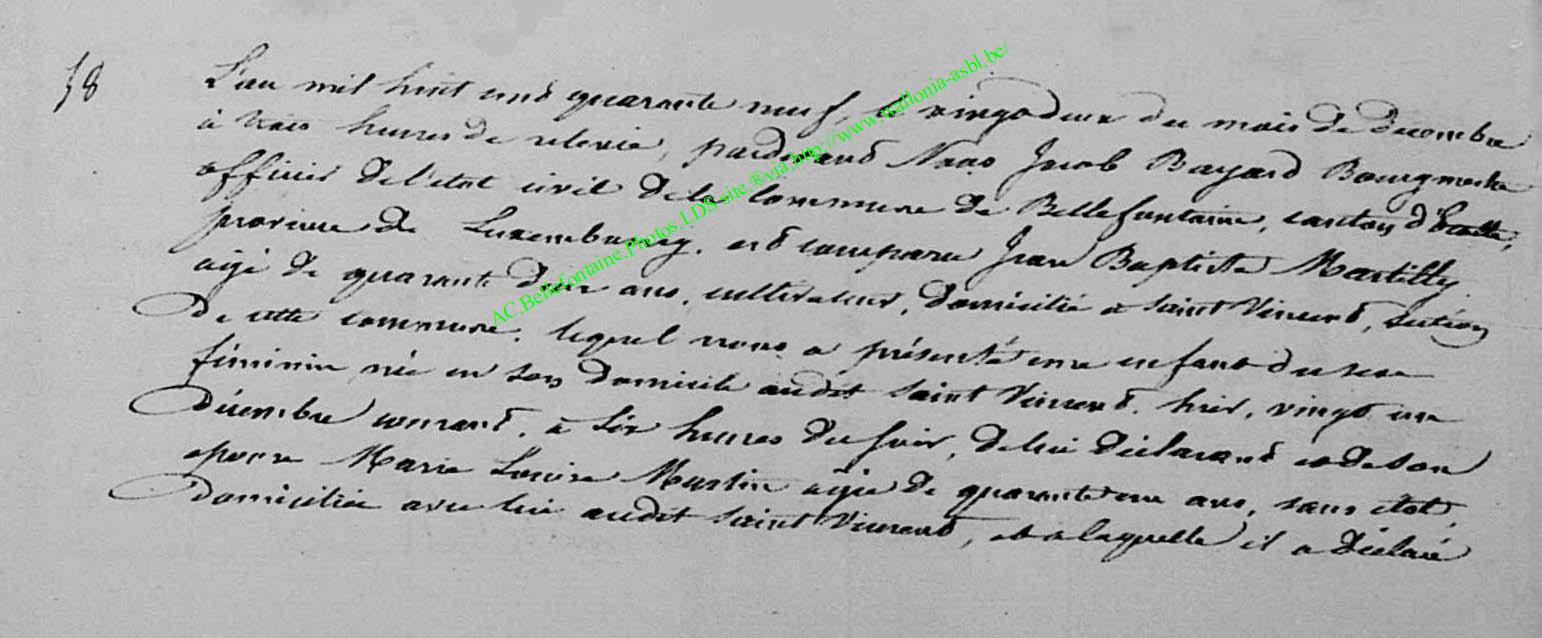 58
L'an mil huit cent quarante neuf, le vingt deux du mois de décembre
à trois heures de relevée, pardevant Nous Jacob Bayard Bourgmestre
officier de l'etat civil de la commune de Bellefontaine, canton d'Etalle,
province de Luxembourg, est comparu Jean Baptiste Martilly
agé de quarante deux ans, cultivateur, domicilié à Saint Vincent, section
de cette commune, lequel nous a présenté un enfant du sexe
féminin née en son domicile audit Saint Vincent, hier, vingt un
décembre courant, à six heures du soir, de lui déclarant et de son
épouse Marie Louise Martin agée de quarante un ans, sans état,
domiciliée avec lui audit Saint Vincent, et à laquelle il a déclaré
AC.Bellefontaine.Photos.LDS.site.®via.http://www.wallonia-asbl.be/